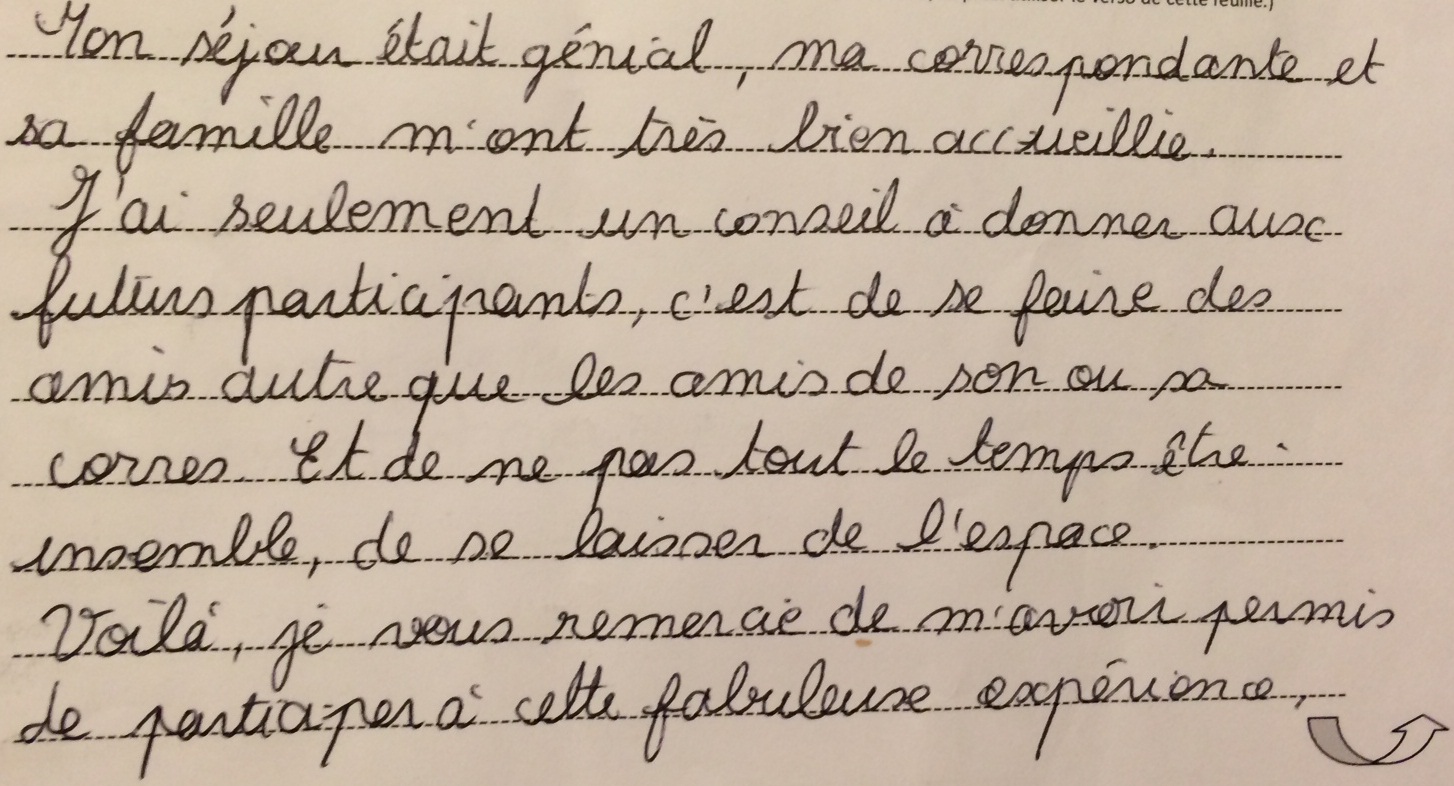 de cette feuille.)
Mon séjour était génial, ma correspondante et
sa famille m'ont très bien accueillie.
J'ai seulement un conseil à donner aux
futurs participants, c'est de se faire des
amis autre que les amis de son ou sa
corres. Et de ne pas tout le temps être
ensemble, de se laisser de l'espace.
Voilà, je vous remercie de m'avoir permis
de participer à cette fabuleuse expérience,